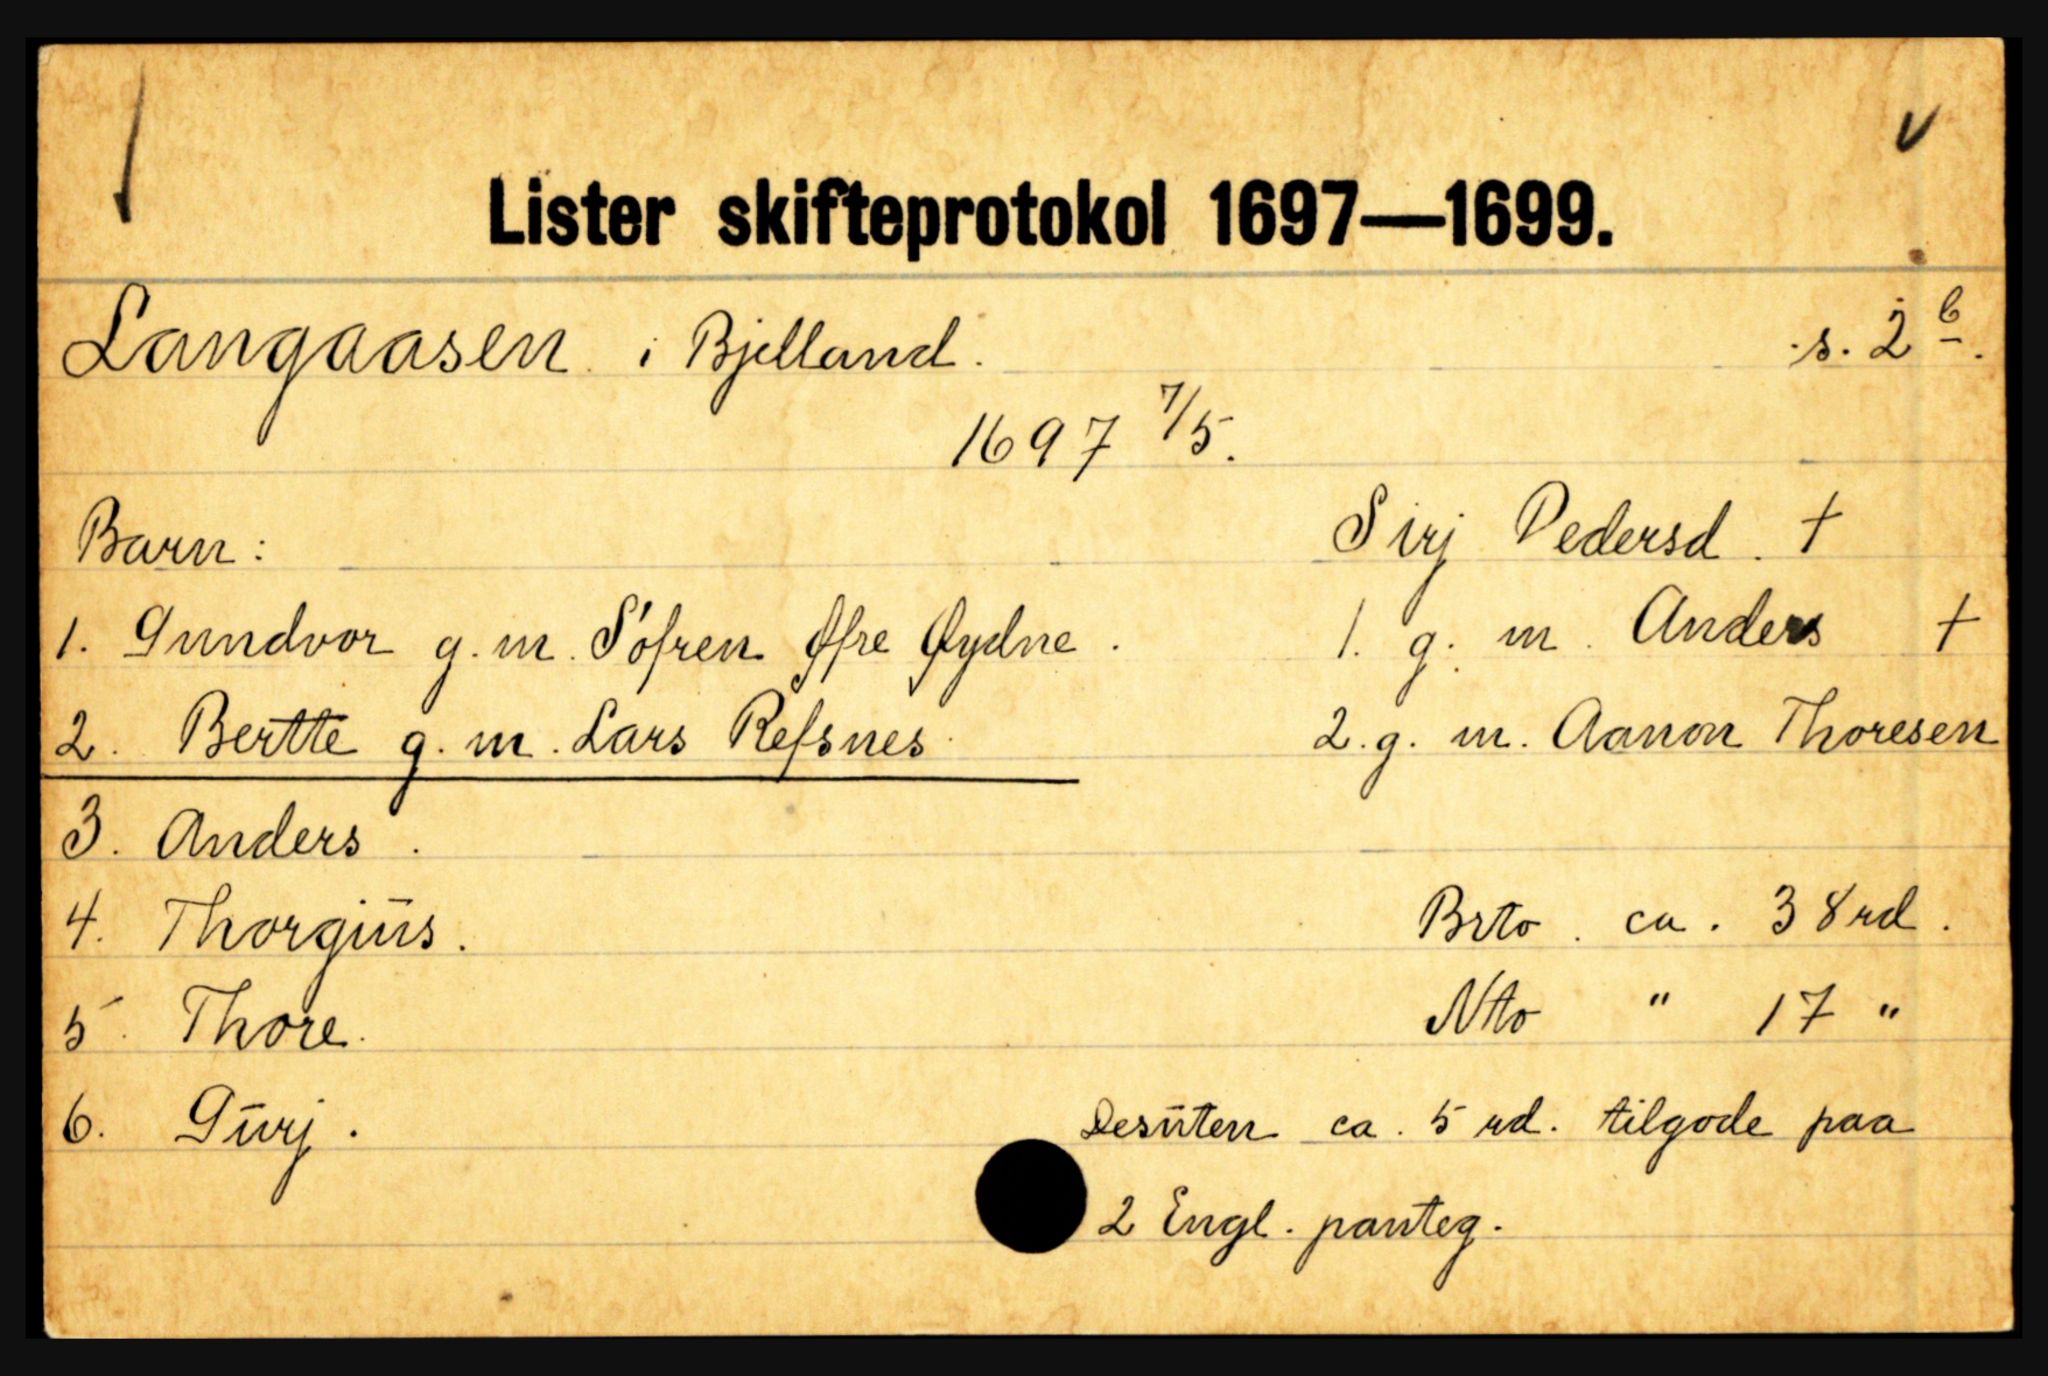 Lister skifteprotokol 1697—1699.
Langaasen i Bjelland. s. 2 b.
1697 7/5.
Barn: Sirj Pedersd. †
1. Gundvor g. m. Söfren Øfre Øydne. 1. g. m. Anders †
2. Bertte g. m. Lars Refsnes. 2. g. m. Aanon Thoresen
3. Anders.
4. Thorgiūs. Brto. ca. 38 rd.
5. Thore. Nto " 17 "
6. Gūrj. Desūten ca. 5 rd. tilgode paa
2 Engl. panteg.